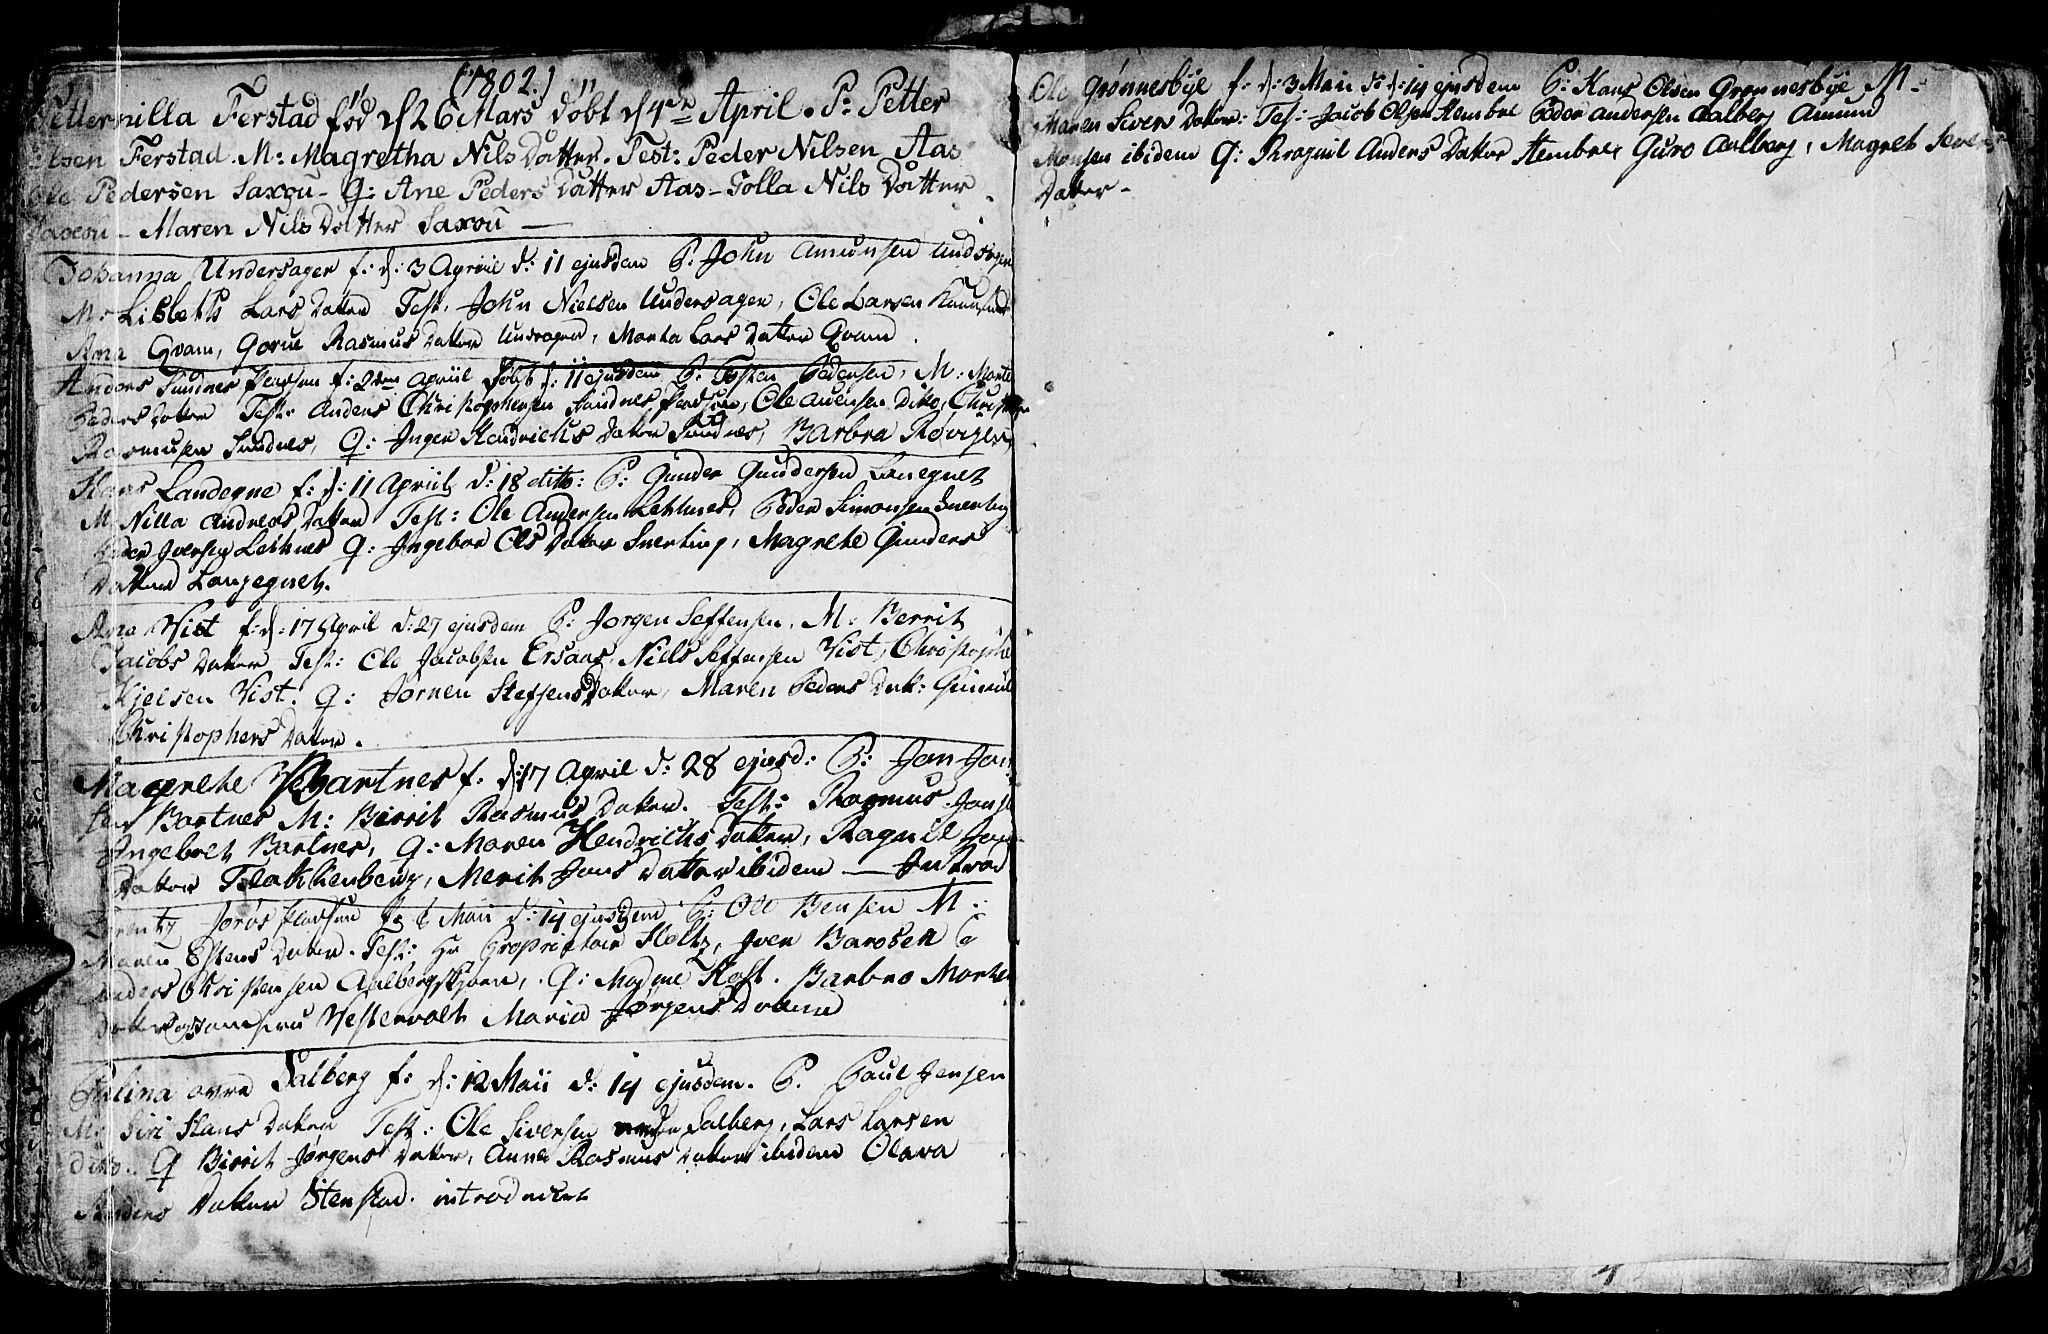 (1802.)
Petternilla Ferstad fød d 26 Mars döbt d 4de April. P: Petter
Olsen Ferstad. M: Magretha Nils Datter. Test: Peder Nilsen Aas
Ole Pedersen Saxou - Q: Ane Peders Datter Aas - Tolla Nils Datter
Saxou - Maren Nils Datter Saxou —
Johanna Undersager f: d: 3 Apriil d: 11 ejusdem P: John Amunsen
M: Lisbeth Lars Datter Test. John Nielsen Undersager, Ole Larsen
Ama Qvam, Gorue Rasmus Datter Undsager, Marta Lars Datter Qvam.
Anders Sundnes f: 2den Apriil Döbt d: 11 ejusdem P: Testen Pedersen, M: Marte
Peders Datter Test: Anders Christophersen Sandnes, Ole Dito, Christopher
Rasmusen Sundnes, Q: Inger Hendrichs Datter Sundnes, Barbra
Hans f: d: 11 Apriil d: 18 ditto: P: Gunder Gundersen Lanegnet
M. Nilla Andreas Datter Test: Ole Andersen Lethnes, Peder Simonsen
Peder Iversen Lethnes Q: Ingebor Ols Datter Snerting, Magrete Gunders
Datter Langegnet.
Ane Vist f: d: 17 April d: 27 ejusdem P: Jorgen Seffensen. M: Berrit
Jacobs Datter Test: Ole Jacobsen Ersaas, Niels Seffensen Vist, Christophe
Kjelsen Vist. Q: Jörnen Steffens Datter, Maren Peders Dat:
Christophers Datter.
Magrete Bartnes f. d: 17 April d: 28 ejusd: P: Jon Jon
sen Bartnes M: Birrit Rasmus Datter. Test: Rasmus
Ingebret Bartnes, Q: Maren Hendrichs Datter, Ragnil Jons
Datter Flakkenberg, Merit Jons Datter ibidem — Introd
Maii d: 14 ejusdem P: Ole Bensen M:
Maren Ostens Datter. Test: Hr Proprietair Holtz, Iver Barosen
Anders Christensen Aalbergskjeren, Q: Madme Holst. Barbro Morten
Vestervolt Maria Jørgens
øvre Salberg f: d: 12 Maii d: 14 ejusdem. P. Paul Jensen
M: Siri Hans Datter Test: Ole Siversen Salberg, Lars Larsen
dito.. Q Birrit Jørgens Datter, Anne Rasmus Datter ibidem Olava
Anders Datter Stenstad. introduceret
Ole Grønnesbye f: d: 3 Maii d: 14 ejusdem P: Hans Olsen Grønnesbye M:
Maren Sivers Datter: Test: Jacob Olsen Hembre Peder Andersen Aalberg Amund
Monsen ibidem Q: Ragnil Anders Datter Hembre, Guro Aalberg, Magret Sivers
Datter -